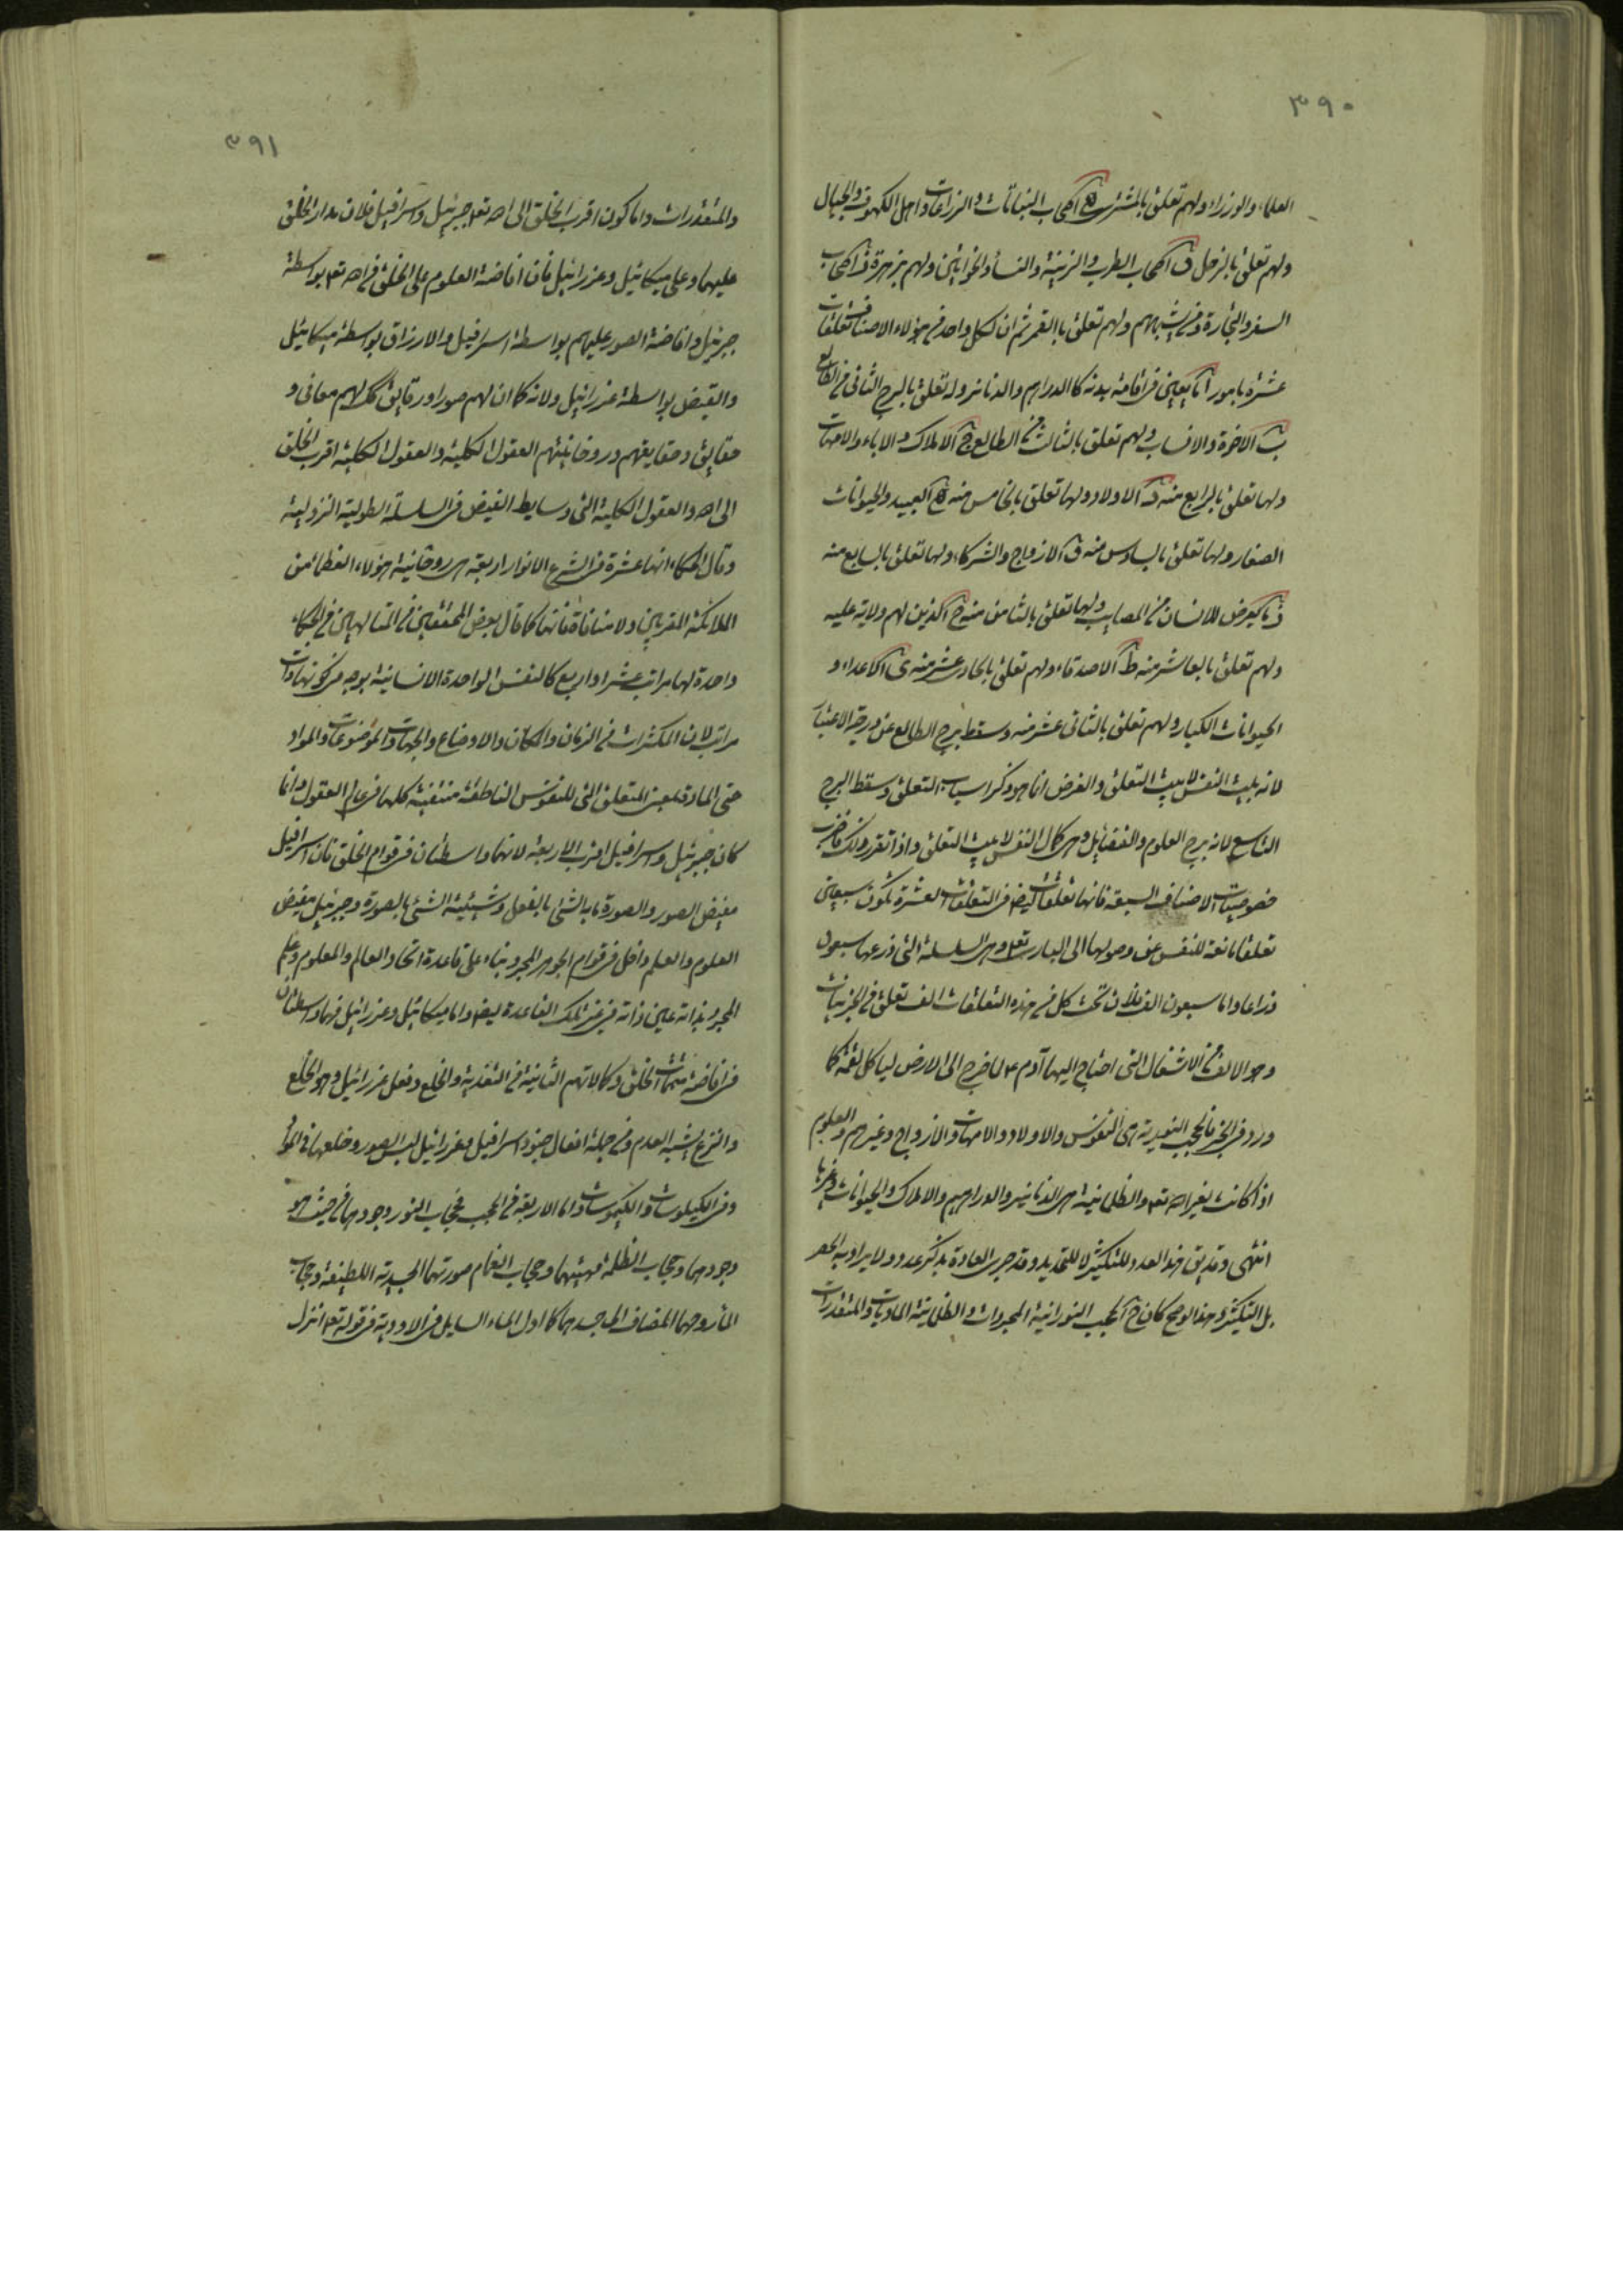 ٣٩٠
العلماء والوزراء ولهم تعلق بالمشتری ه اصحاب النباتات والزراعات واهل الكهوف والجبال
ولهم تعلق بالزحل و اصحاب الطرب والزينة والنساء والخواتين ولهم بزهرة ز اصحاب
السفر والتجارة ومن يشبههم ولهم تعلق باالقمر ثم ان لكل واحد من هؤلاء الاصناف تعلقات
عشرة بامور ا ما يعين فی اقامة بدنه كالدراهم والدنانير وله تعلق بالبرج الثانی من الطالع
ب الاخوة والانساب ولهم تعلق بالثالث من الطالع ج الاملاك والاباء والامهات
ولها تعلق بالرابع منه د الاولاد ولها تعلق بالخامس منه ه العبيد والحيوانات
الصغار ولها تعلق بالسادس منه و الازواج والشركاء ولها تعلق بالسابع منه
ز ما يعرض للانسان من المصايب ولها تعلق بالثامن منه ح الذين لهم ولاية عليه
ولهم تعلق بالعاشر منه ط الاصدقاء ولهم تعلق بالحادی عشر منه ی الاعداء و
الحيوانات الكبار ولهم تعلق بالثانی عشر منه وسقط برج الطالع عن درجة الاعتبار
لانه بيت النفس لا بيت التعلق والغرض انما هو ذكر اسباب التعلق وسقط البرج
التاسع لانه برج العلوم والفضايل وهی كمال النفس لا بيت التعلق واذا تقرر ذلك فاضرب
خصوصيات الاصناف السبعة فانها تعلقات ايضا فی التعلقات العشرة تكون سبعين
تعلقا مانعة للنفس عن وصولها الی الباری تعه وهی السلسلة التی ذرعها سبعون
ذراعا واما سبعون الف فلان تحت كل من هذه التعلقات الف تعلق من الجزئيات
وهو الالف من الاشغال التی احتاج اليها آدم ع لما خرج الی الارض لياكل لقمة كما
ورد فی الخبر فالحجب النورية هی النفوس والاولاد والامهات والازواج وغيرهم والعلوم
اذا كانت لغير الله تعه والظلمانية هی الدنانير والدراهيم والاملاك والحيوانات وغيرها
انتهی وقد يق هذا العدد للتكثير لا للتحديد وقد جری العادة بذكر عدد ولا يراد به الحصر
بل التكثير وهذا اوضح كان ح الحجب النورانية المجردات والظلمانية الماديات والمتقدرات
٣٩١
والمتقدرات واما كون اقرب الخلق الی الله تعه جبرئيل واسرافيل فلان مدار الخلق
عليهما وعلی ميكائيل وعزرائيل فان افاضة العلوم علی الخلق من الله تعه بواسطة
جبرئيل وافاضة الصور عليهم بواسطة اسرافيل والارزاق بواسطة ميكائيل
والقبض بواسطة عزرائيل ولانه كما ان لهم صورا ورقايق كك لهم معانی و
حقايق وحقايقهم وروحانيتهم العقول الكلية والعقول الكلية اقرب الخلق
الی الله والعقول الكلية التی وسايط الفيض فی السلسلة الطولية النزولية
وقال الحكماء انها عشرة فی الشرع الانوار اربعة هی روحانية هؤلاء العظماء من
الملائكة المقربين ولا منافاة فانها كما قال بعض المحققين من المتالهين من الحكماء
واحدة لها مراتب عشر او اربع كالنفس الواحدة الانسانية بوجه من كونها ذات
مراتب لان المكثرات من الزمان والمكان والاوضاع والجهات والموضوعات والمواد
حتی المادة بمعنی المتعلق التی للنفوس الناطقة منتفية كلها فی عالم العقول وانما
كان جبرئيل واسرافيل اقرب الاربعة لانهما واسطتان فی قوام الخلق فان اسرافيل
مفيض الصور والصورة ما به الشی بالفعل وشيئية الشئ بالصورة وجبرئيل مفيض
العلوم والعلم داخل فی قوام الجوهر المجرد بناء علی قاعدة اتحاد العالم والمعلوم وعلم
المجرد بذاته عين ذاته من غير تلك القاعدة ايضا واما ميكائيل وعزرائيل فهما واسطتان
فی افاضة متممات الخلق وكمالاتهم الثانية من التغذية والخلع وفعل عزرائيل وهو الخلع
والنزع يشبه العدم ومن جملة افعال جنود اسرافيل وعزرائيل لبس الصور وخلعها فی المواد
وفی الكيلوسات والكيموسات واما الاربعة من الحجب فحجاب النور وجودهما من حيث هو
وجودهما وحجاب الظلمة مهيتهما وحجاب الغمام صورتهما الجسدية اللطيفة وحجاب
الماء روحهما المضاف الی جسدهما كما اول الماء السايل فی الاودية فی قوله تعه انزل